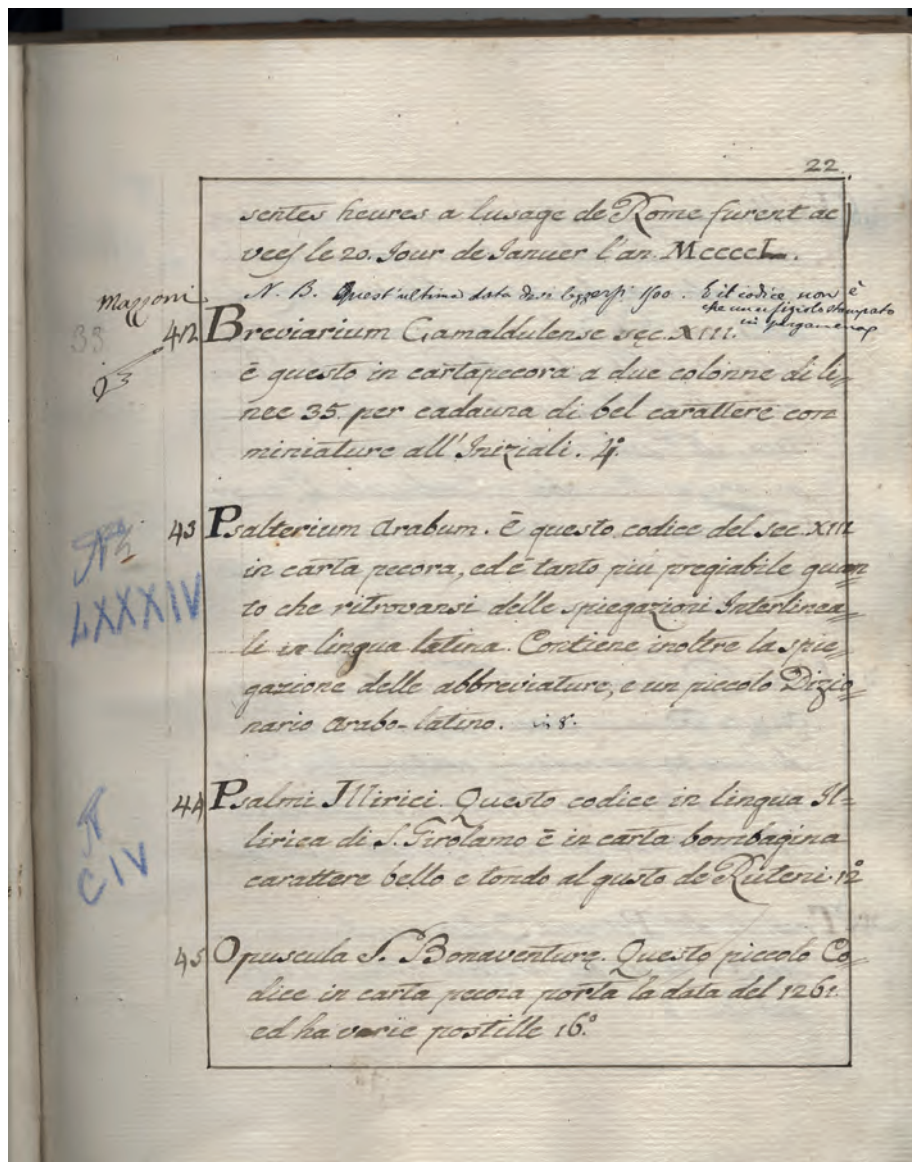 22.
sentes heures a lusage de Rome furent ac
veeſ le 20. Jour de Januer l'an. MccccL.
N. B. Quest'ultima data devi leggersi 1500. E il codice non è
che un stampato
in pergamena
Mazzoni
33
42 Breviarium Camaldulense sęc. XIII.
è questo in cartapecora a due colonne di li=
nee 35. per cadauna di bel carattere con
miniature all'Iniziali. 4º
43 Psalterium Arabum. È questo codice del sec. XIII
in carta pecora, ed è tanto più pregiabile quan
to che ritrovansi delle spiegazioni Interlinea=
li in lingua latina. Contiene inoltre la spie=
gazione delle abbreviature, e un piccolo Dizio=
nario Arabo-latino. in 8º.
LXXXIV
44 Psalmi Illirici. Questo codice in lingua Il=
lirica di S. Girolamo è in carta bombagina
carattere bello e tondo al gusto de Ruteni. 12º
A
CIV
45 Opuscula S. Bonaventurę. Questo piccolo Co=
dice in carta pecora porta la data del 1261.
ed ha varie postille 16.º